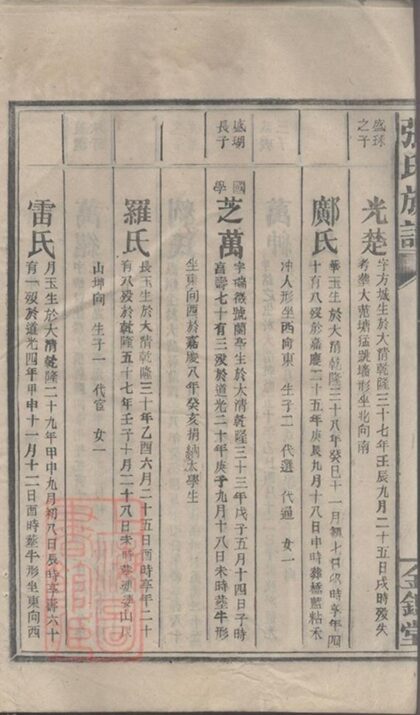 張氏族譜
金鑑堂
盛球之子
光楚
字方城生於大清乾隆三十七年壬辰九月二十五日戌時歿失
考葬大范塘猛跳墻形坐北向南
鄺氏
玉生於大清乾隆三十八年癸巳十一月初七日
時享年四
十有八歿於嘉慶二十五年庚辰九月十八日申時葬橋藍粘木
冲人形坐西向東 生子二 代選 代通 女一
盛瑚長子
國學
芝萬
字瑞徵號蘭亭生於大清乾隆三十三年戊子五月十四日子時
高壽七十有三歿於道光二十年庚子九月十八日未時葬牛形
坐東向西於嘉慶八年癸亥捐納太學生
羅氏
長玉生於大清乾隆三十年乙酉六月二十五日酉時享年二十
有八歿於乾隆五十七年壬子十月二十八日未時葬
山艮
山坤向 生子一 代官 女一
雷氏
月玉生於大清乾隆二十九年甲申九月初八日辰時享壽六十
有一歿於道光四年甲申十一月十二日酉時葬牛形坐東向西